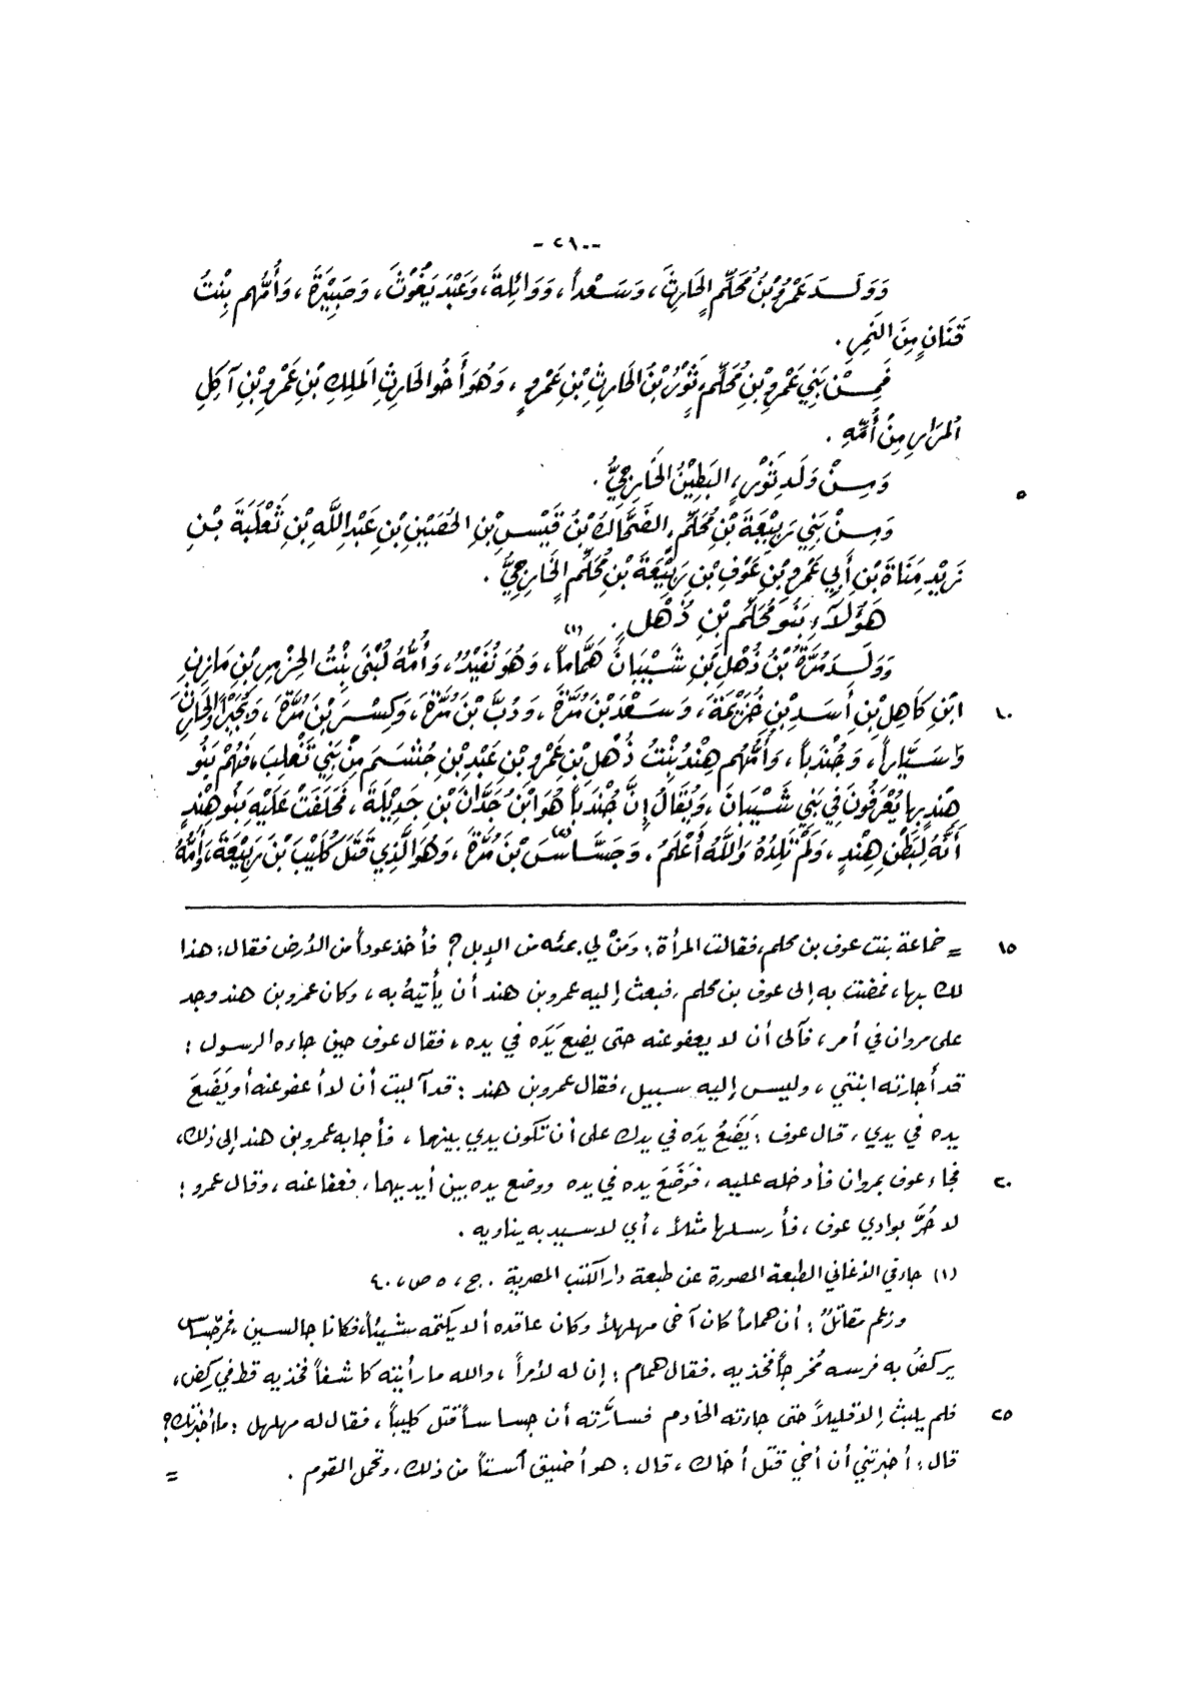 -٢١٠-
وَوَلَـدَ عَمْرُو بْنُ مُحَلِّمٍ الحَارِثَ، وَسَعْداً، وَوَائِلةَ، وَعَبْدَ يَغُوْثَ، وَصَبِيْرَةَ، وَأُمُّهم بِنْتُ
قَنَانٍ مِنَ النَمِرِ.
فَمِـنْ بَنِي عَمْرِو بْنِ مُحَلِّمٍ، ثَوْرُ بْنُ الحَارِثِ بْنِ عَمْرٍو، وَهُوَ أَخُو الحَارِثِ الَملِكِ بْنِ عَمْرِو بْنِ آكِلِ
الُمرَارِ مِنْ أُمِّهِ.
وَمِـنْ وَلَدِ ثَوْرٍ، البَطِيْنُ الخَارِجِيُّ.
٥
وَمِـنْ بَنِي رَبِيْعَةَ بْنِ مُحَلِّمٍ، الضَحَّاكُ بْنُ قَيْسِ بْنِ الحُصَيْنِ بْنِ عَبْدِ اللَّهِ بْنِ ثَعْلَبَةَ بْـنِ
زَيْدِ مَنَاةَ بْنِ أَبِي عَمْرِو بْنِ عَوْفِ بْنِ رَبِيْعَةَ بْنِ مُحَلِّمٍ الخَارِجِيُّ.
هَؤُلاَءِ بَنُو مُحَلِّمِ بْنِ ذُهْلٍ.
وَوَلَـدَ مُرَّةُ بْنُ ذُهْلِ بْنِ شَيْبَانَ هَمَّاماً(١)، وَهُوَ نُفَيْدٌ، وَأُمُّهُ لُبْنَى بِنْتُ الحِزْمِرِ بْنِ مَازِنِ
١٠
ابْنِ كَاهِلِ بْنِ أَسَـدِ بْنِ خُزَيْمَةَ، وَسَعْدَ بْنَ مُرَّةَ، وَدُبَّ بْنَ مُرَّةَ، وَكِسْرَ بْنَ مُرَّةَ، وَبُجَيْراً وَالحَارِثَ
وَسَيَّاراً، وَجُنْدَباً، وَأُمُّهُم هِنْدُ بِنْتُ ذُهْلِ بْنِ عَمْرِو بْنِ عَبْدِ بْنِ جُشَـمَ مِنْ بَنِي تَغْلِبَ، فَهُمْ بَنُو
هِنْدٍ بِها يُعْرَفُونَ فِي بَنِي شَيْبَانَ، وَيُقَالُ إِنَّ جُنْدَباً هُوَ ابْنُ جَدَّانَ بْنِ جَدِيْلَةَ، فَحَلَفَتْ عَلَيْهِ بَنُو هِنْدٍ
أَنَّهُ لِبَطْنِ هِنْدٍ، وَلَمْ تَلِدْهُ وَاللَّهُ أَعْلَمُ. وَجَسَّاسَ بْنَ مُرَّةَ، وَهُوَ الَّذِي قَتَلَ كُلَيْبَ بْنَ رَبِيْعَةَ، وَأُمُّهُ
١٥
= خماعة بنت عوف بن محلم، فقالت المرأة: ومَنْ لي بمئه من الإبل؟ فأخذ عوداً من الأرض فقال: هذا
لك بها، فمضت به إلى عوف بن محلم، فبعث إليه عمرو بن هند أن يأتيهُ به، وكان عمرو بن هند وجد
على مروان في أمر، فآلى أن لا يعفو عنه حتى يضع يَدَه في يده، فقال عوف حين جاءه الرسول:
قد أجارته ابنتي، وليس إليه سبيل، فقال عمرو بن هند: قد آليت أن لا أعفو عنه أو يَضَعَ
يده في يدي، قال عوف: يَضَعُ يدَه في يدك على أن تكون يدي بينهما، فأجابه عمرو بن هند إلى ذلك،
٢٠
فجاء عوف بمروان فأدخله عليه، فوَضَعَ يده في يده ووضع يده بين أيديهما، فعفا عنه، وقال عمرو:
لا حُرَّ بوادي عوف، فأرسلها مثلاً، أي لا سيد به يناويه.
(١) جاء في الأغاني الطبعة المصورة عن طبعة دار الكتب المصرية. ج، ٥ ص، ٤٠
وزعم مقاتلٌ: أن هماماً كان آخى مهلهلاً وكان عاقده ألا يكتمه شيئاً، فكانا جالسين، فمرّ جسّاس
يركضُ به فرسه مُخرجاً فخذيه. فقال همام: إن له لأمراً، والله ما رأيته كاشفاً فخذيه قط في ركض،
٢٥
فلم يلبث إلا قليلاً حتى جاءته الخادم فسارَّته أن جساساً قتل كليباً، فقال له مهلهل: ما أخبرتك؟
قال: أخبرتني أن أخي قتل أخاك، قال: هو أضيق آستاً من ذلك، وتحمل القوم. =